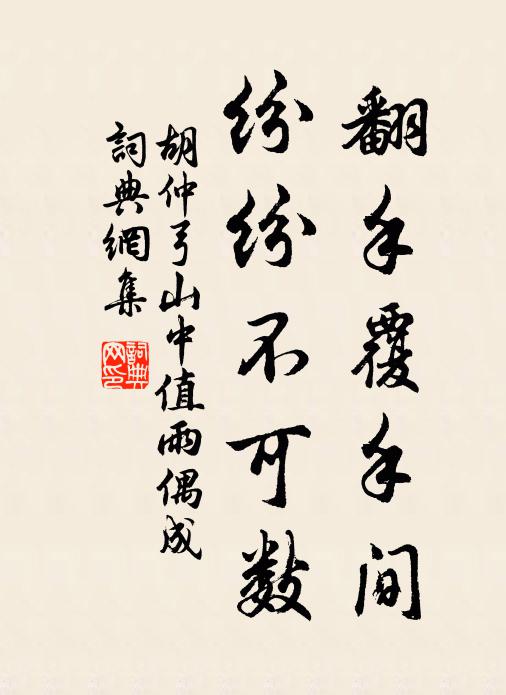 翻手覆手间
纷纷不可数
胡仲弓山中值雨偶成
词典網集
詞典网印